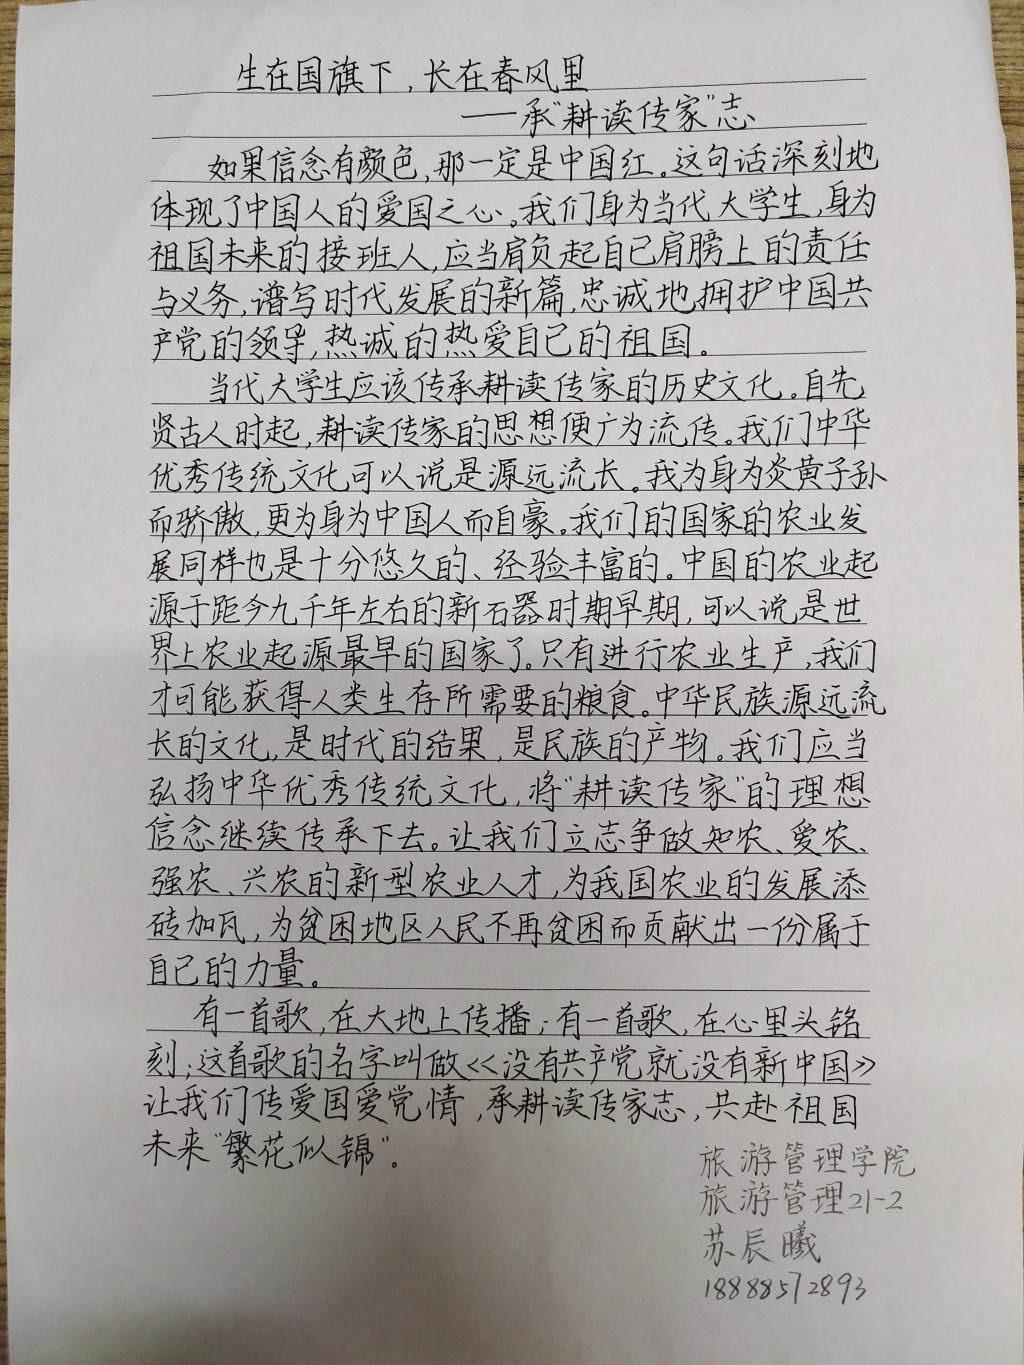 生在国旗下,长在春风里
——承"耕读传家"志
如果信念有颜色,那一定是中国红。这句话深刻地
体现了中国人的爱国之心。我们身为当代大学生,身为
祖国未来的接班人,应当肩负起自己肩膀上的责任
与义务,谱写时代发展的新篇,忠诚地拥护中国共
产党的领导,热诚的热爱自己的祖国。
当代大学生应该传承耕读传家的历史文化。自先
贤古人时起,耕读传家的思想便广为流传。我们中华
优秀传统文化可以说是源远流长。我为身为炎黄子孙
而骄傲,更为身为中国人而自豪。我们的国家的农业发
展同样也是十分悠久的、经验丰富的。中国的农业起
源于距今九千年左右的新石器时期早期,可以说是世
界上农业起源最早的国家了。只有进行农业生产,我们
才可能获得人类生存所需要的粮食。中华民族源远流
长的文化,是时代的结果,是民族的产物。我们应当
弘扬中华优秀传统文化,将"耕读传家"的理想
信念继续传承下去。让我们立志争做知农、爱农、
强农、兴农的新型农业人才,为我国农业的发展添
砖加瓦,为贫困地区人民不再贫困而贡献出一份属于
自己的力量。
有一首歌,在大地上传播;有一首歌,在心里头铭
刻;这首歌的名字叫做《没有共产党就没有新中国》
让我们传爱国爱党情,承耕读传家志,共赴祖国
未来"繁花似锦"。
旅游管理学院
旅游管理21-2
苏辰曦
18888572893